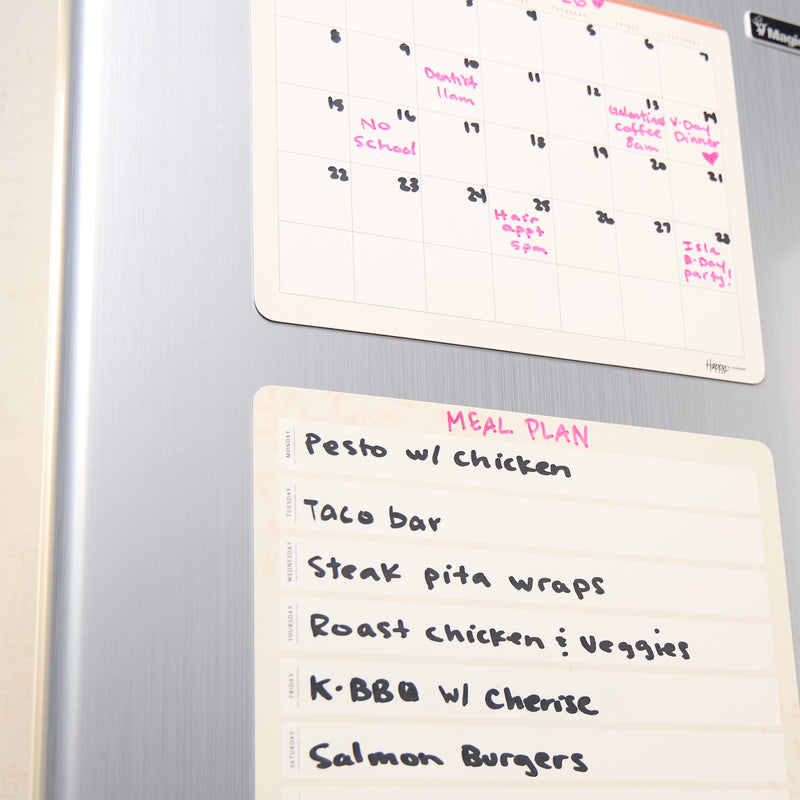 THURSDAY
FRIDAY
SATURDAY
4 5 6 7
8 9 10 11 12 13 14
Dentist
11am
Galentine
coffee
8am
V-Day
Dinner
15 16 17 18 19 20 21
No
School
22 23 24 25 26 27 28
Hair
appt
5pm
Isla
B-Day!
party!
Happy PLANNER
Magic
MEAL PLAN
MONDAY
Pesto w/ chicken
TUESDAY
Taco bar
WEDNESDAY
Steak pita wraps
THURSDAY
Roast chicken & Veggies
FRIDAY
K-BBQ w/ Cherise
SATURDAY
Salmon Burgers